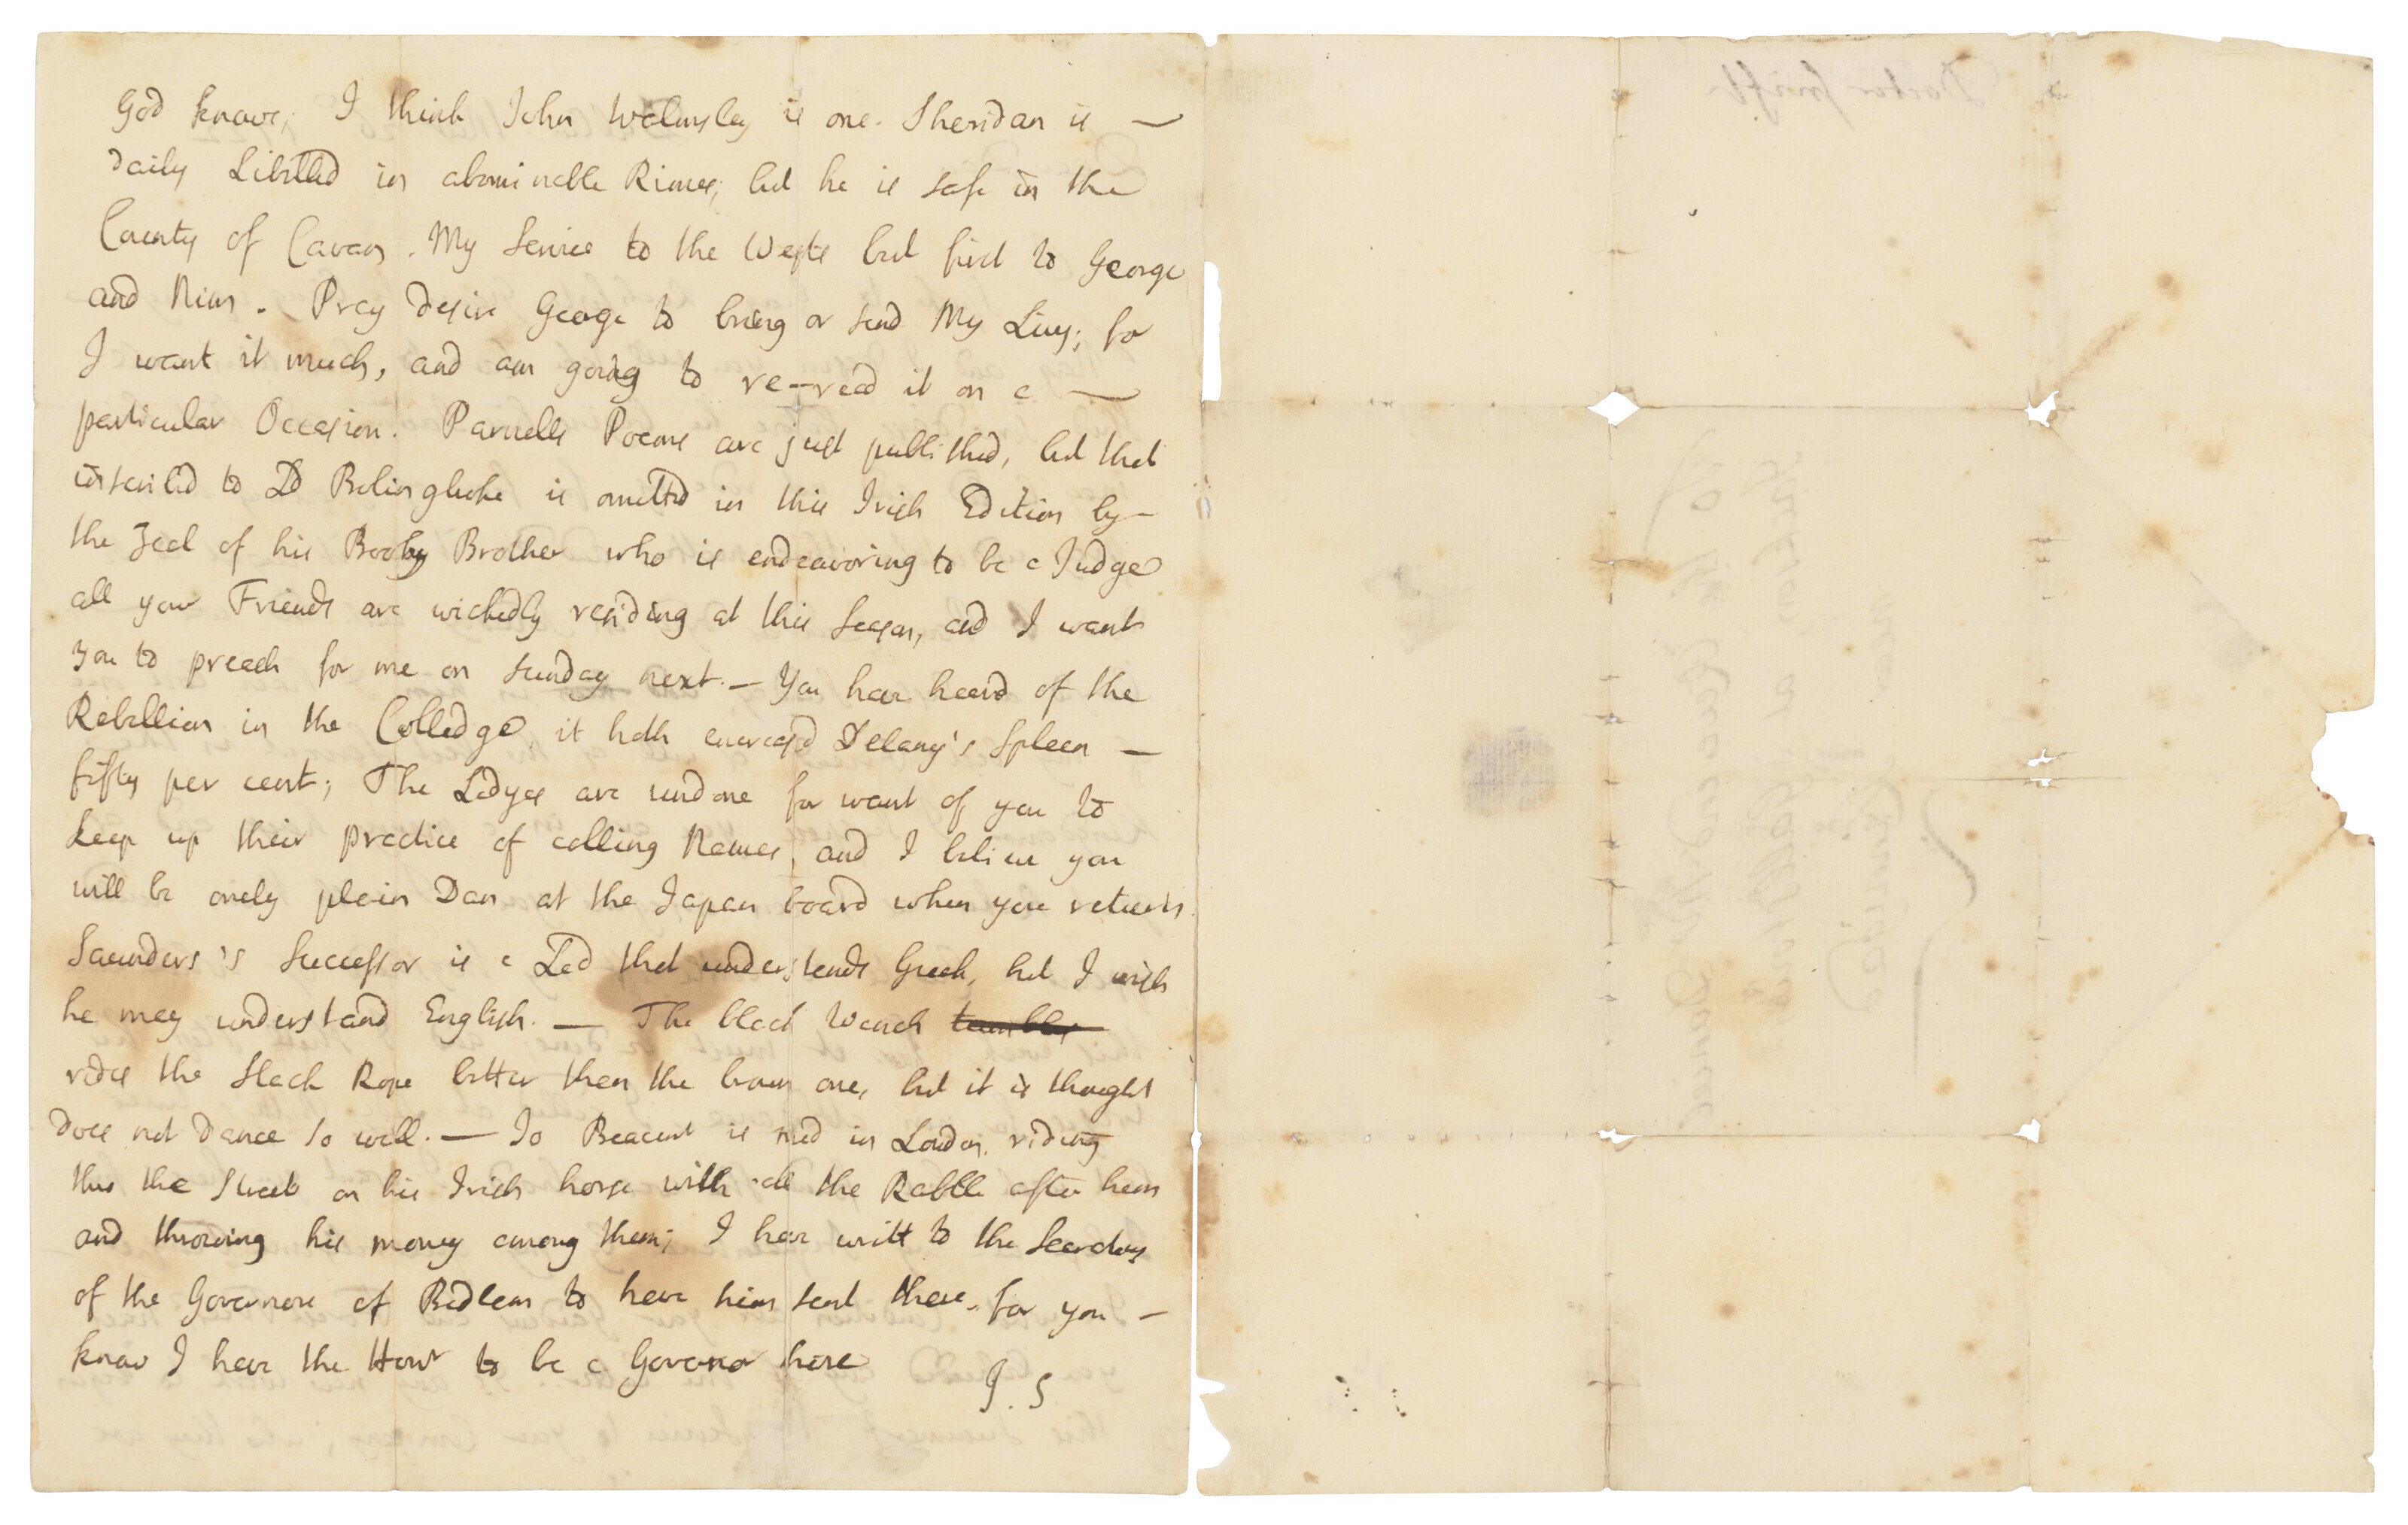 God knows, I think John Walmsley is one. Sheridan is —
daily Libelled in abominable Rimes; but he is safe in the
County of Cavan. My Service to the Wests but first to George
and Nim. Pray desire George to bring or send My Livy; for
I want it much, and am going to re-read it on a —
particular Occasion. Parnells Poems are just published, but that
inscribed to Ld Bolingbroke is omitted in this Irish Edition by —
the Zeal of his Booby Brother who is endeavoring to be a Judge
all your Friends are wickedly residing at this Season, and I want
you to preach for me on Sunday next. — You have heard of the
Rebellion in the Colledge, it hath encreasd Delany's Spleen —
fifty per cent; The Ladyes are undone for want of you to
keep up their practice of calling Names, and I believe you
will be onely plain Dan at the Japan board when you return.
Saunders's Successor is a Lad that understands Greek, but I wish
he may understand English. — The black Wench tumbles
rides the Slack Rope better than the brown one, but it is thought
does not dance so well. — Jo Beacont is mad in London, riding
thro the Street on his Irish horse with all the Rabble after him
and throwing his money among them; I have writt to the Secretary
of the Governors of Bedlam to have him sent there, for you —
know I have the Honr to be a Governor there
J. S
Doctor Swift